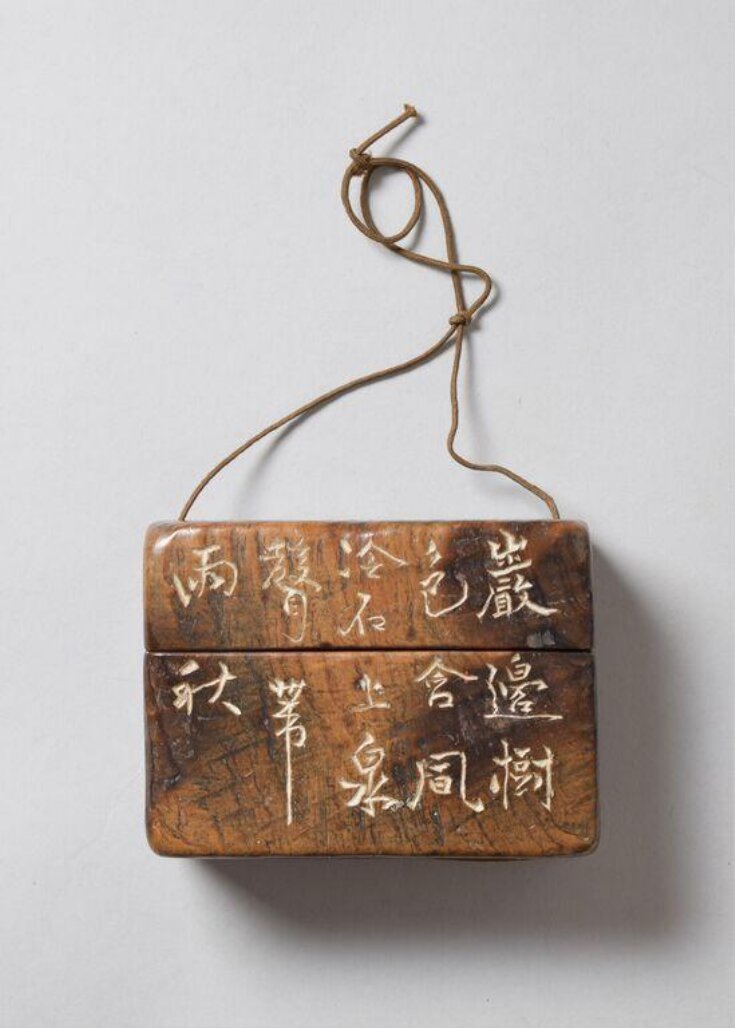 巖邊樹
色含風
冷石上泉
聲帶
雨秋